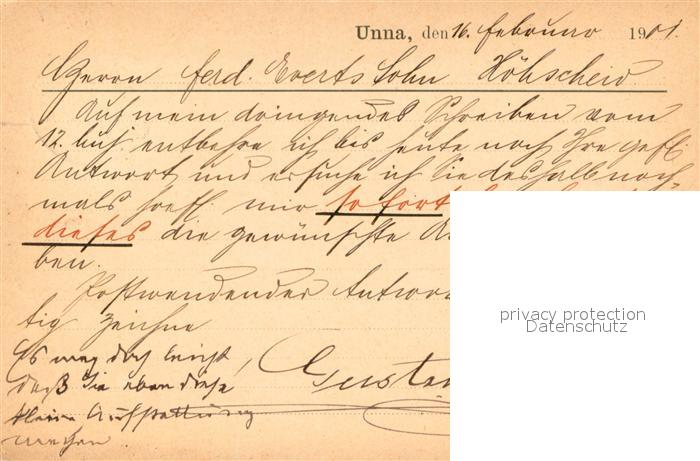 Unna, den 16. Februar 1901.
Herrn Ferd. Everts Sohn Höhscheid
Auf mein dringendes Schreiben vom
12. huj. entbehre ich bis heute noch Ihre gefl.
Antwort und ersuche ich Sie deshalb noch-
mals höfl. mir sofort
dieses die gewünschte
ben.
Postwendender Antwort
tig zeichne
Es mag doch leicht,
daß Sie eben diese
kleine Aufstellung
machen
Gustav
privacy protection
Datenschutz